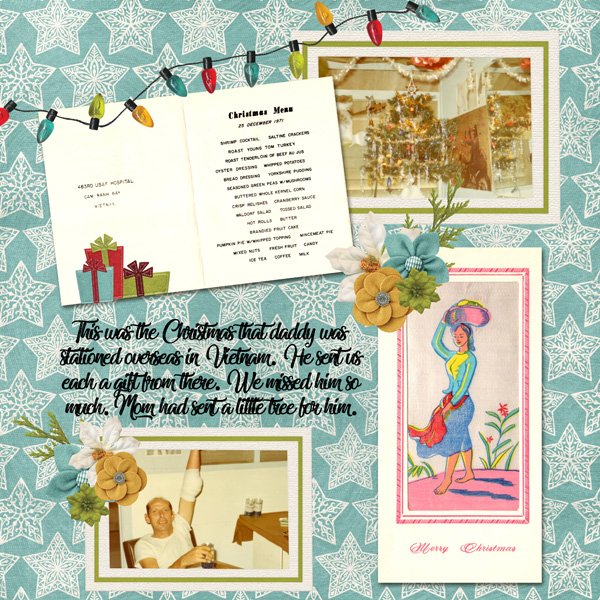 483RD USAF HOSPITAL
CAM RANH BAY
VIETNAM
Christmas Menu
25 DECEMBER 1971
SHRIMP COCKTAIL SALTINE CRACKERS
ROAST YOUNG TOM TURKEY
ROAST TENDERLOIN OF BEEF AU JUS
OYSTER DRESSING WHIPPED POTATOES
BREAD DRESSING YORKSHIRE PUDDING
SEASONED GREEN PEAS W/MUSHROOMS
BUTTERED WHOLE KERNEL CORN
CRISP RELISHES CRANBERRY SAUCE
WALDORF SALAD TOSSED SALAD
HOT ROLLS BUTTER
BRANDIED FRUIT CAKE
PUMPKIN PIE W/WHIPPED TOPPING MINCEMEAT PIE
MIXED NUTS FRESH FRUIT CANDY
ICE TEA COFFEE MILK
This was the Christmas that daddy was
stationed overseas in Vietnam. He sent us
each a gift from there. We missed him so
much. Mom had sent a little tree for him.
Merry Christmas